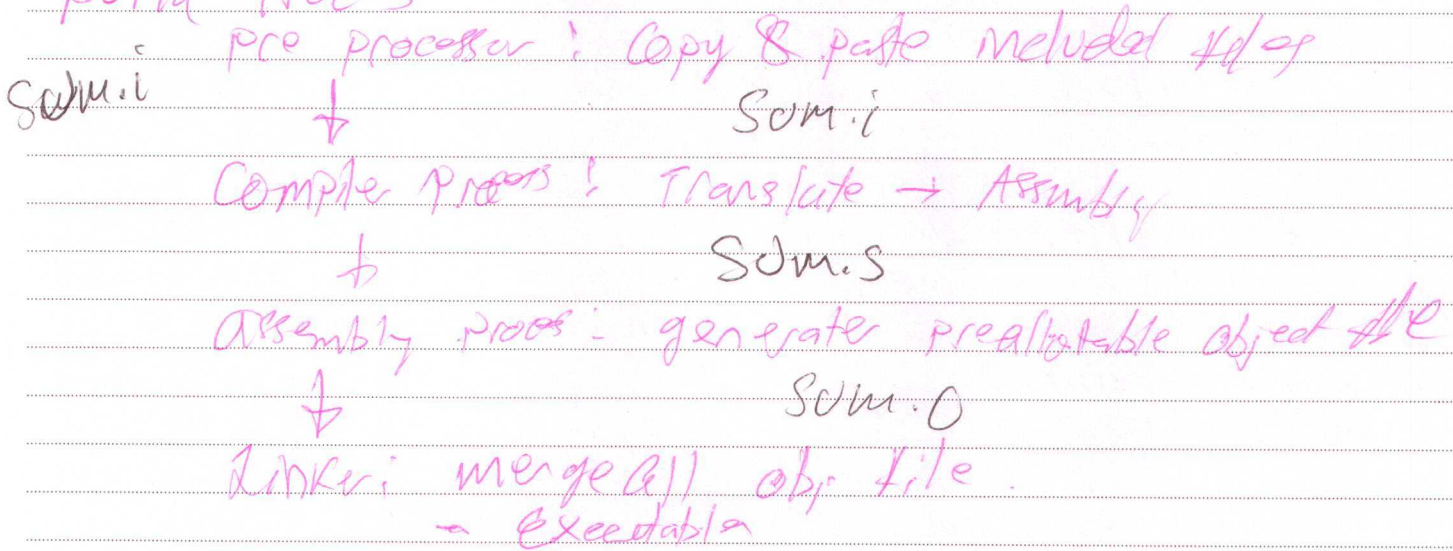 pre processor : Copy & paste included files
Sum.i
↓ Sum.i
Compiler Process : Translate → Assembly
↓ Sum.s
assembly proces : generate object file
↓ Sum.o
Linker : merge all obj file.
→ executable